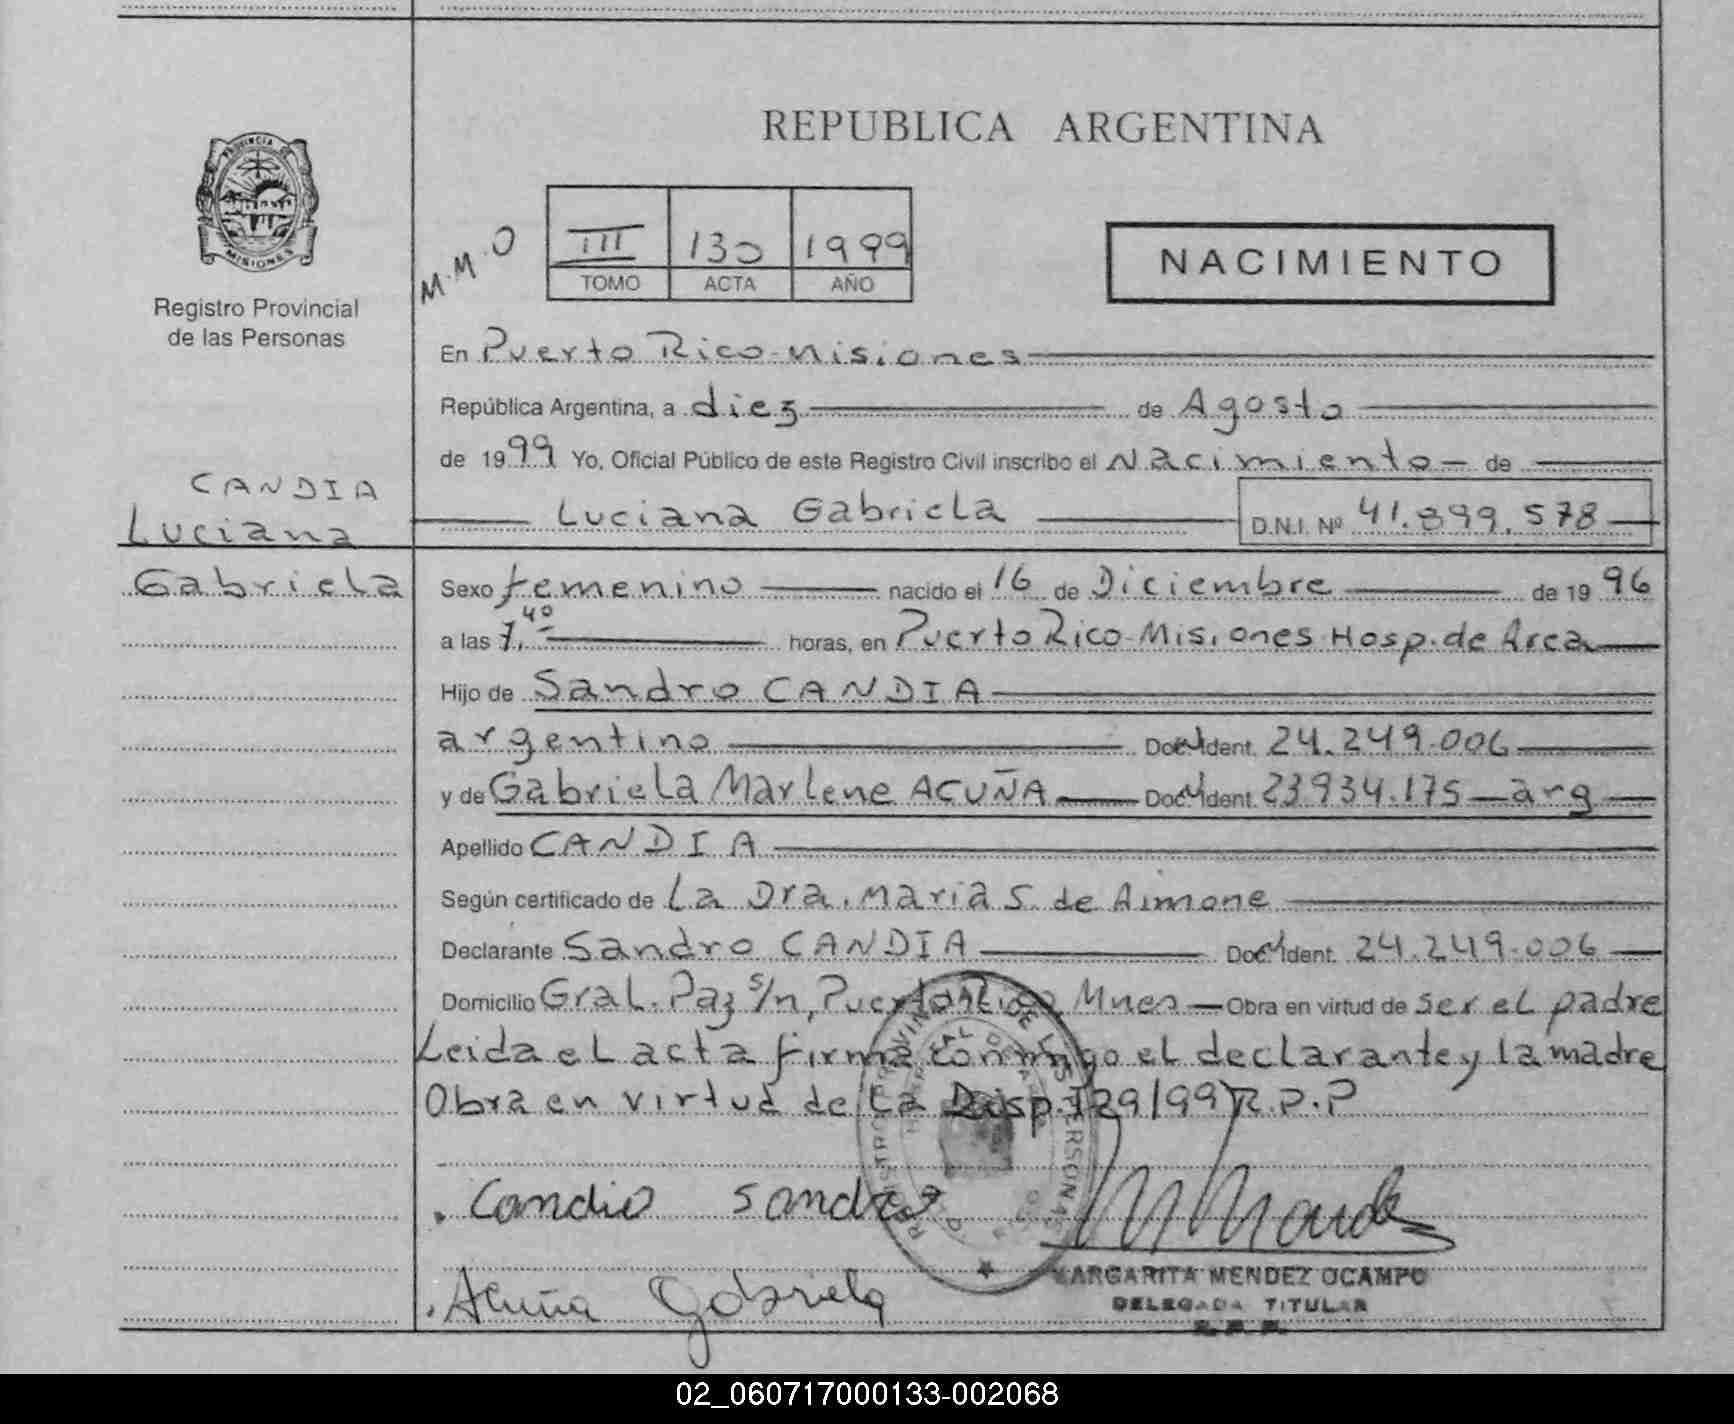 REPUBLICA ARGENTINA
PROVINCIA DE
MISIONES
Registro Provincial
de las Personas
M.M.O
III 130 1999
TOMO ACTA AÑO
NACIMIENTO
En Puerto Rico-Misiones
República Argentina, a diez de Agosto
de 1999 Yo, Oficial Público de este Registro Civil inscribo el Nacimiento de
CANDIA
Luciana
Gabriela
Luciana Gabriela D.N.I. Nº 41.899.578
Sexo femenino nacido el 16 de Diciembre de 1996
a las 7,40 horas, en Puerto Rico-Misiones Hosp. de Area
Hijo de Sandro CANDIA
argentino Doc. Ident. 24.249.006
y de Gabriela Marlene ACUÑA Doc. Ident. 23934.175 arg
Apellido CANDIA
Según certificado de La Dra. Maria S. de Aimone
Declarante Sandro CANDIA Doc. Ident. 24.249.006
Domicilio Gral. Paz s/n, Puerto Rico, Mnes Obra en virtud de ser el padre
Leida el acta firma conmigo el declarante y la madre
Obra en virtud de la Disp. 129/99 R.P.P
Candia Sandro
Acuña Gabriela
MARGARITA MENDEZ OCAMPO
DELEGADA TITULAR
02_060717000133-002068